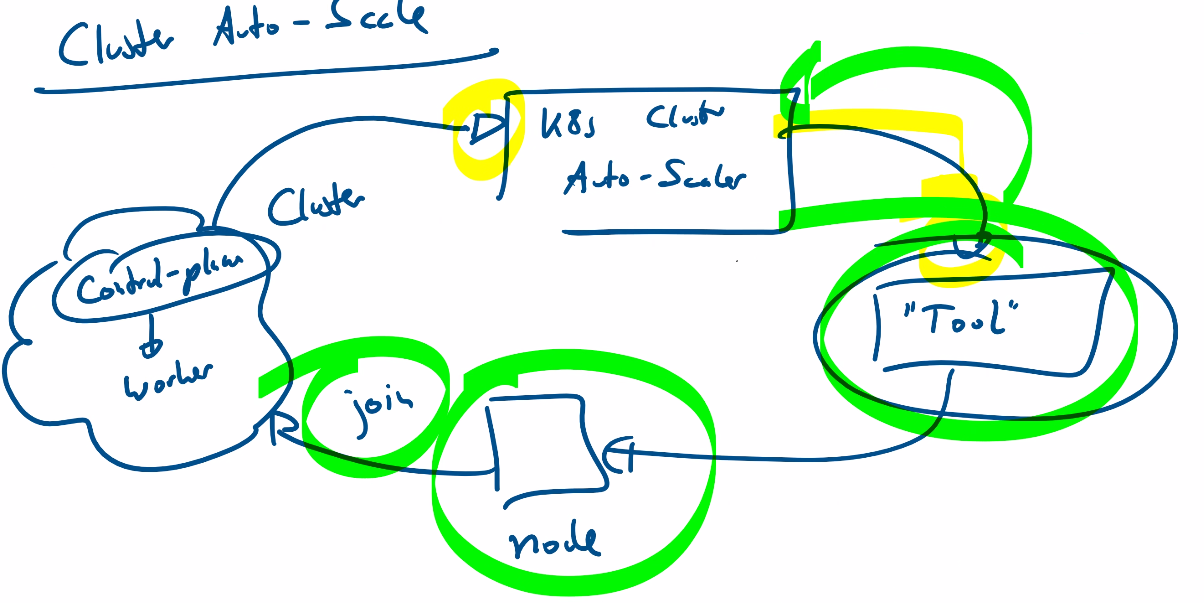 Cluster Auto-Scale
K8s Cluster
Auto-Scaler
Cluster
Control-plane
worker
"Tool"
join
node